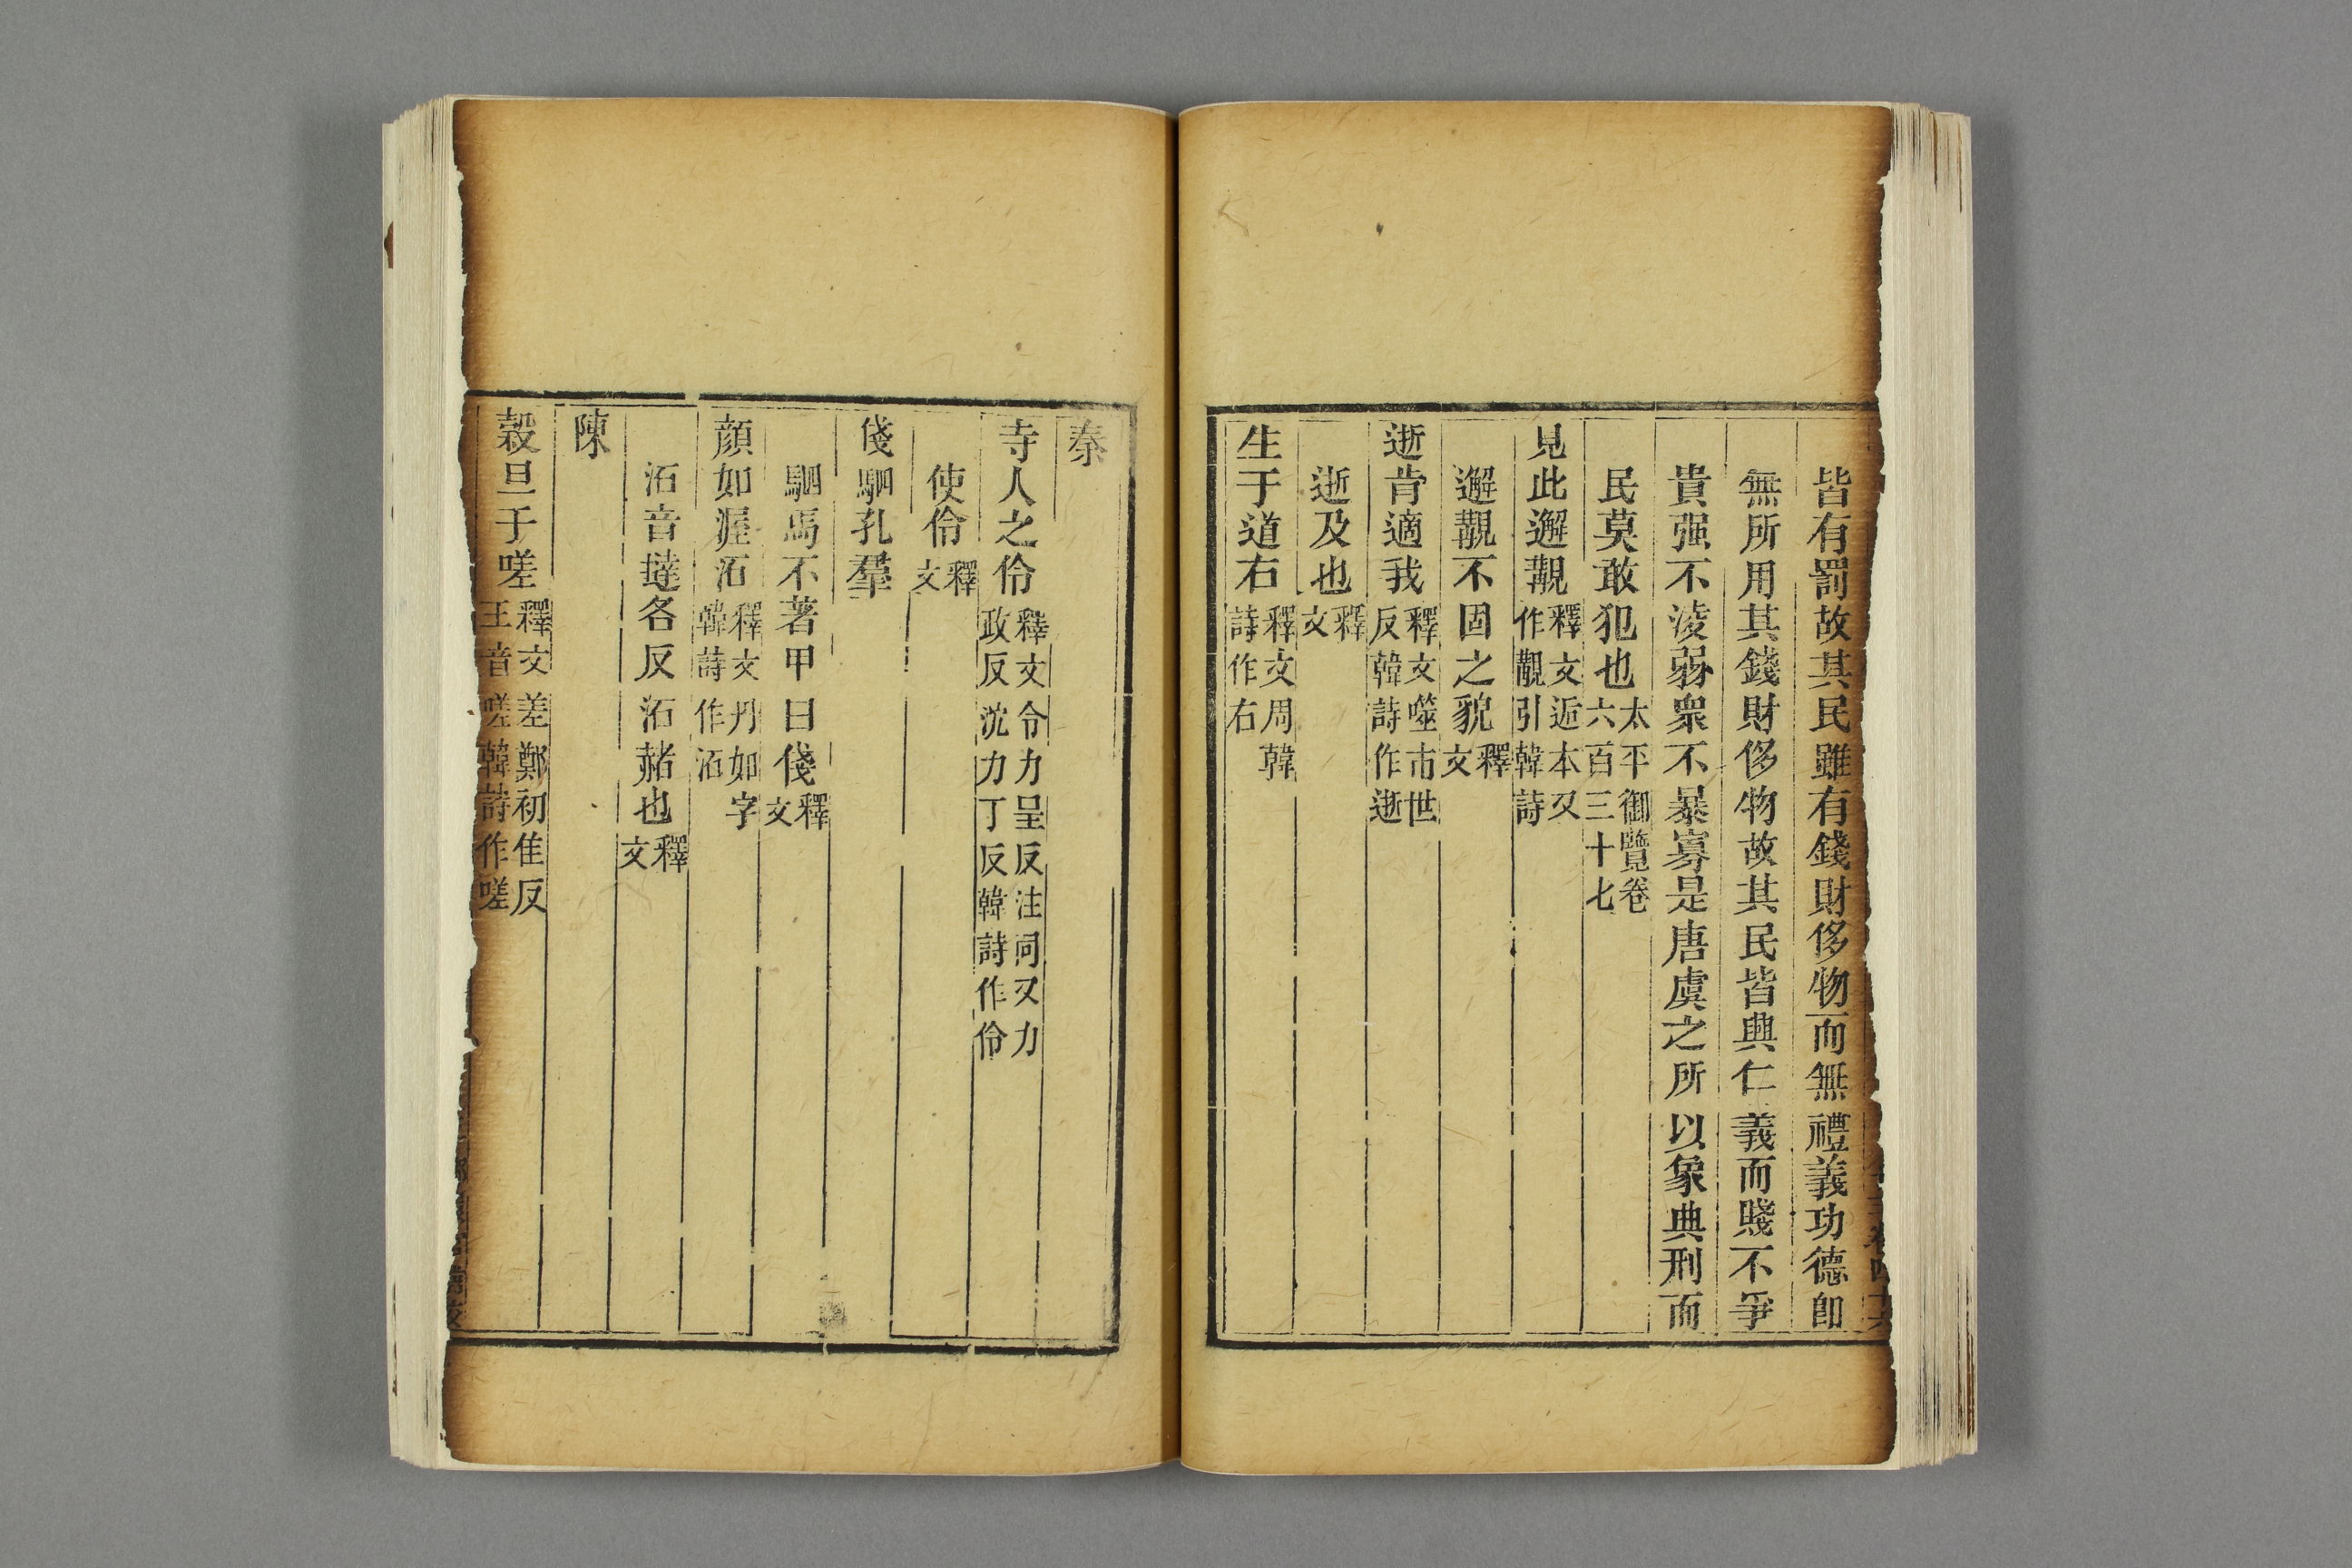 皆有罰故其民雖有錢財侈物而無禮義功德卽
無所用其錢財侈物故其民皆興仁義而賤不爭
貴强不淩弱衆不暴寡是唐虞之所以象典刑而
民莫敢犯也太平御覽卷六百三十七
見此邂覯釋文近本又作覯引韓詩
邂覯不固之貌釋文
逝肯適我釋文噬市世反韓詩作逝
逝及也釋文
生于道右釋文周韓詩作右
秦
寺人之伶釋文令力呈反注同又力政反沈力丁反韓詩作伶
使伶釋文
俴駟孔羣
駟馬不著甲曰俴釋文
顔如渥沰釋文丹如字韓詩作沰
沰音撻各反沰赭也釋文
陳
穀旦于嗟釋文差鄭初佳反王音嗟韓詩作嗟